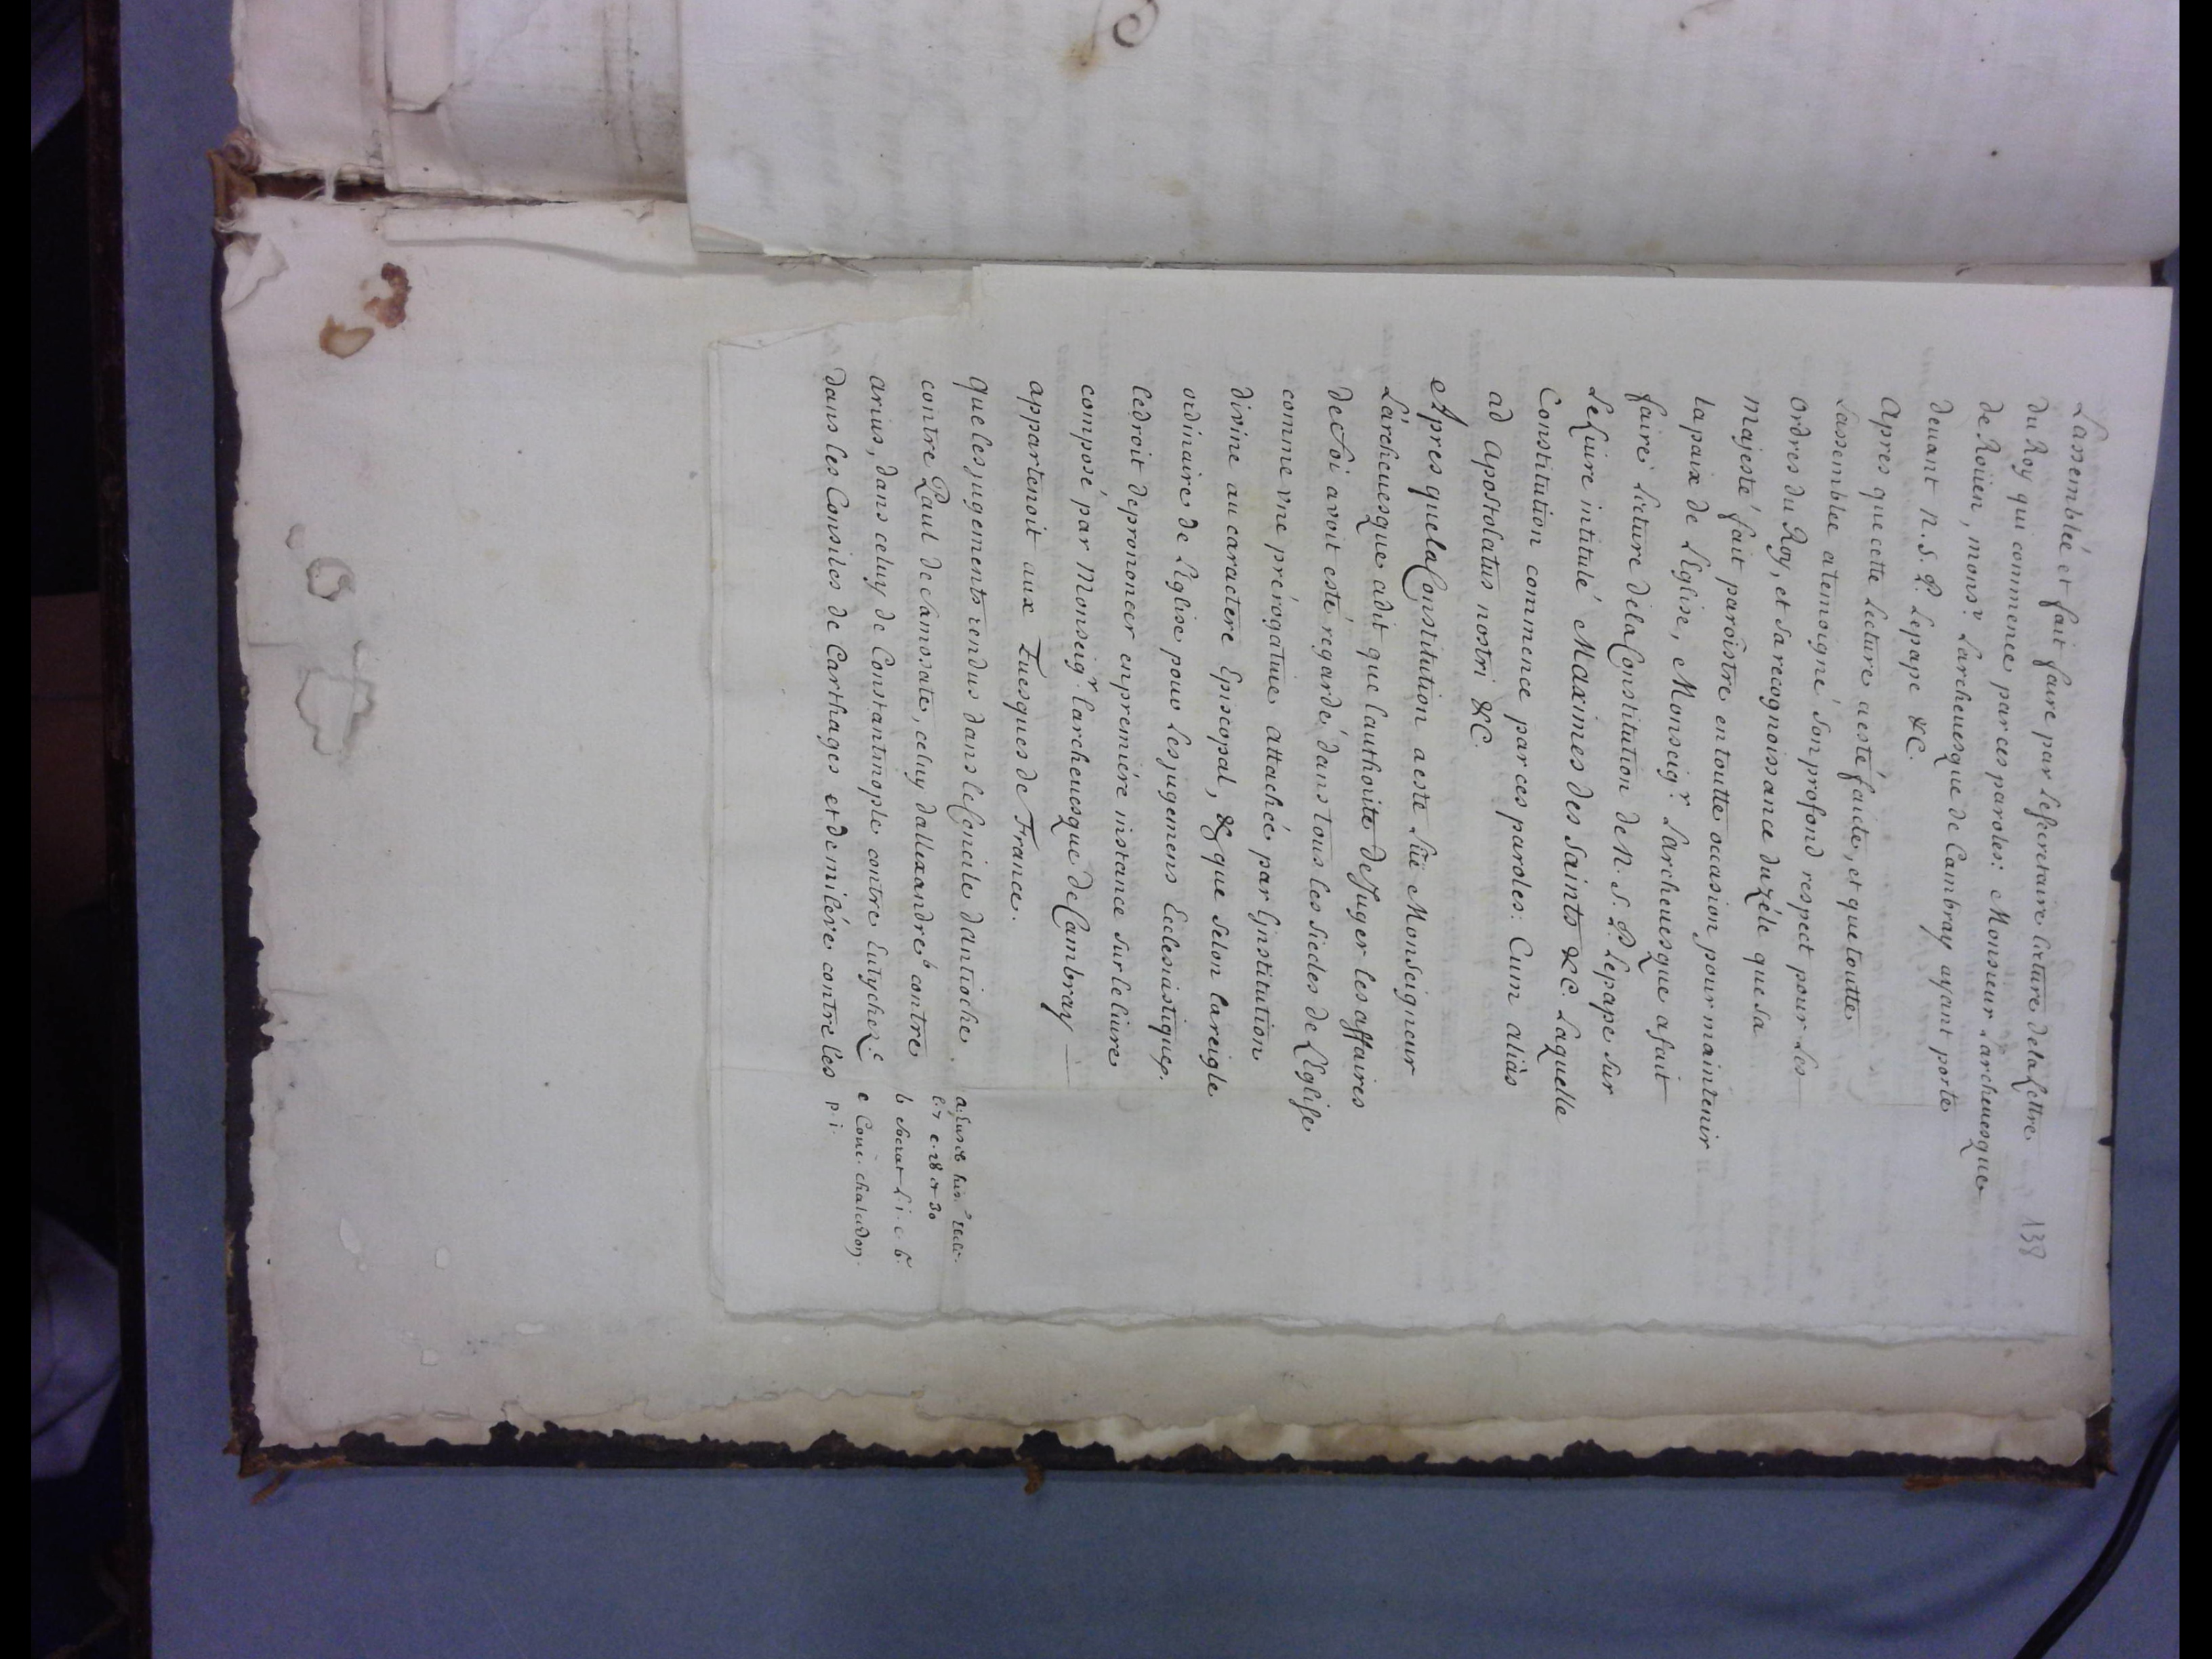 138
Lassemblée et fait faire par lesecretaire lecture delalettre
du Roy qui commence parces paroles: Monsieur Larcheuesque
de Roüen, monsr. Larcheuesque de Cambray ayant porte
deuant n. s. P. Lepape &c.
Apres que cette lecture aesté faicte, et que toutte
Lassemblee atemoigné son profond respect pour les
ordres du Roy, et sa recognoissance duzéle que sa
majesté fait paroistre en toutte occasion pour maintenir
la paix de l'Eglise, Monseigr. Larcheuesque afait
faire lecture dela Constitution de N. S. P. Lepape sur
Leliure intitulé Maximes des Saints &c. Laquelle
Constitution commence par ces paroles: Cum aliàs
ad Apostolatus nostri &c.
Apres que la Constitution aeste lüe Monseigneur
L'archeuesque adit que lauthorité de Juger les affaires
de foi avoit esté regardé, dans tous les siecles de l'Eglise
comme vne prérogatiue attachée par Ginstitution
divine au caractere Episcopal, & que selon lareigle
ordinaire de l'Eglise pour les jugemens Ecclesiastiques.
ledroit deprononcer enpremiére instance sur le liure
composé par Monseigr. larcheuesque de Cambray
appartenoit aux Euesques de France.
Que les jugements rendus dans le Concile dantioche
contre Paul de Samosate, celuy dallexandre b contre
arius, dans celuy de Constantinople contre Eutychez c
dans les Conciles de Carthages et de miléve contre les
a. Euseb his. eccli.
l. 7 c. 28 et 30
b Socrat l. i. c. 6
c Conc. chalcedon.
p i.